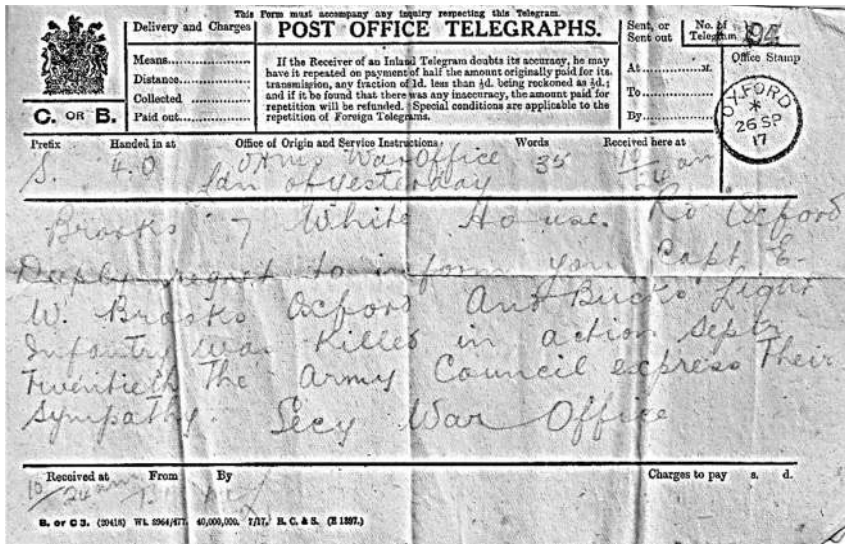 This Form must accompany any inquiry respecting this Telegram.
Delivery and Charges
Means
Distance
Collected
Paid out
C. OR B.
POST OFFICE TELEGRAPHS.
If the Receiver of an Inland Telegram doubts its accuracy, he may
have it repeated on payment of half the amount originally paid for its
transmission, any fraction of 1d. less than ½d. being reckoned as ½d.;
and if it be found that there was any inaccuracy, the amount paid for
repetition will be refunded. Special conditions are applicable to the
repetition of Foreign Telegrams.
Sent, or
Sent out
At M.
To
By
No. of
Telegram
Office Stamp
OXFORD
26 SP
17
Prefix Handed in at Office of Origin and Service Instructions. Words Received here at
S. 4.0 OHMS War Office 35 10/24 am
Ldn of yesterday
Brooks 7 White House Rd Oxford
Deeply regret to inform you Capt. E.
W. Brooks Oxford And Bucks Light
Infantry was killed in action Septr
Twentieth The army Council express Their
Sympathy. Secy War Office
Received at From By Charges to pay s. d.
10/24 am
B. or C 3. (20418) Wt. 8964/477. 40,000,000. 7/17. B. C. & S. (E 1897.)